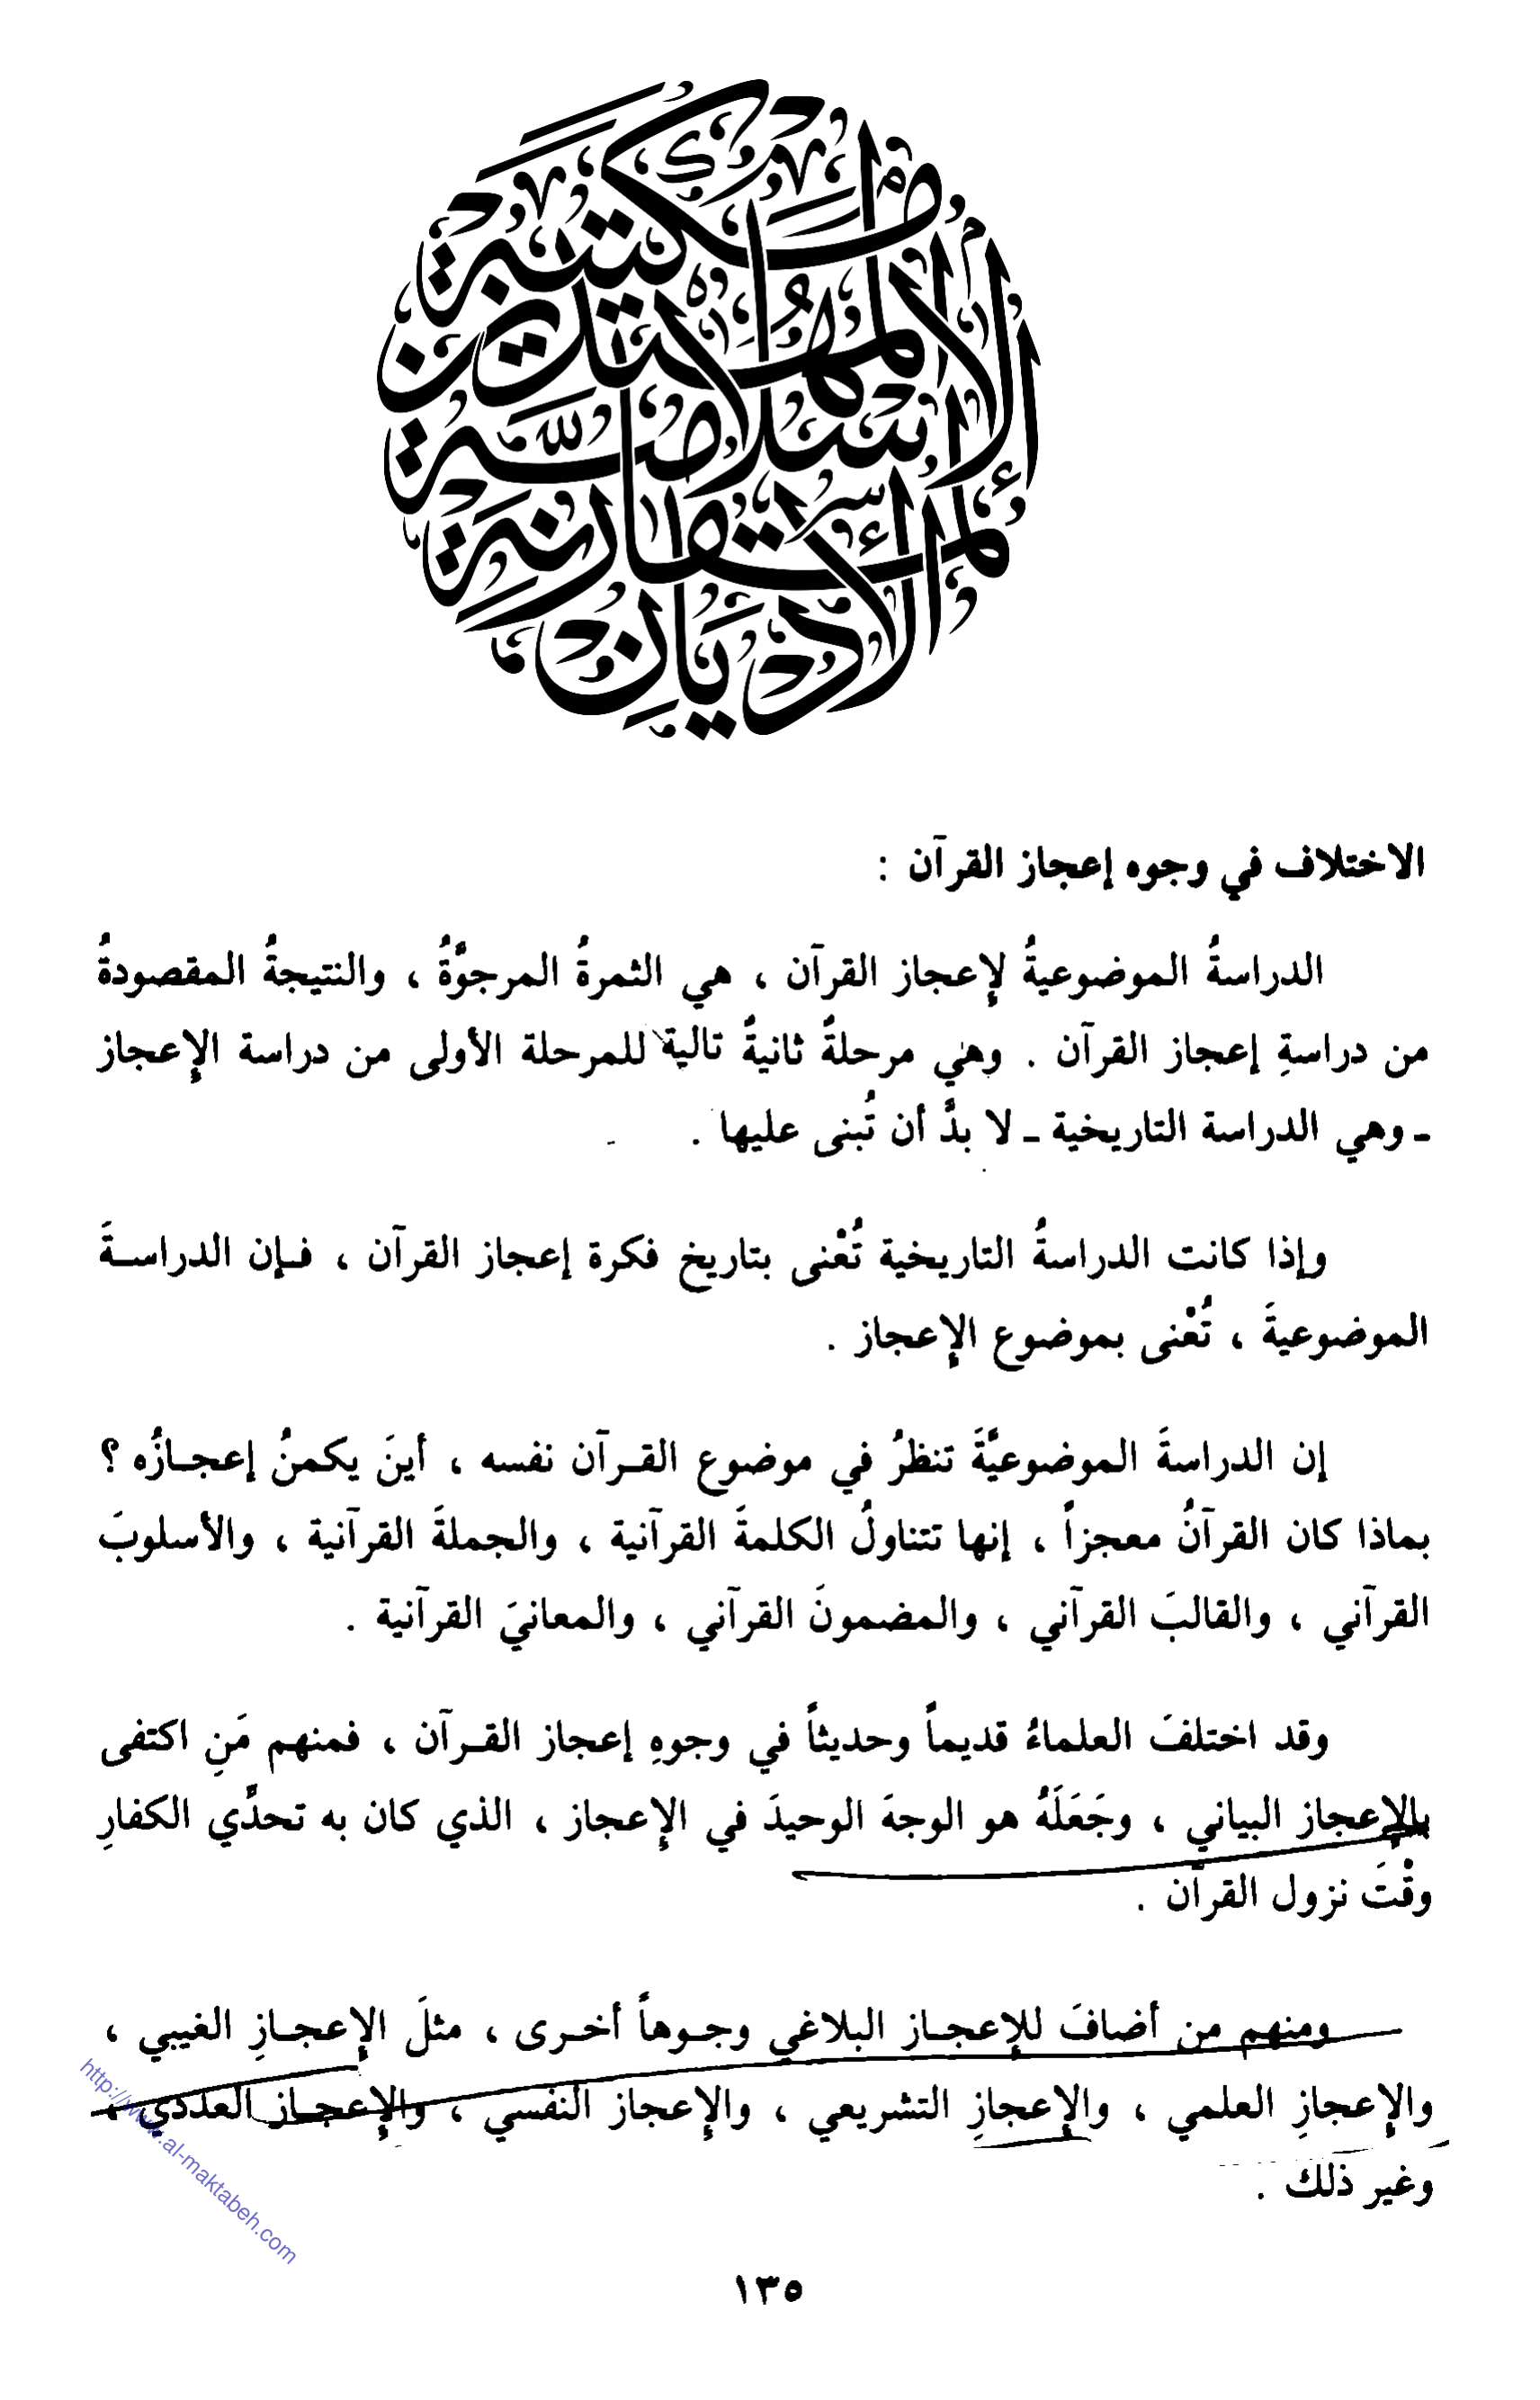 مكتبة
المهتدين
الإسلامية
لمقارنة
الأديان
الاختلاف في وجوه إعجاز القرآن :
الدراسةُ الموضوعيةُ لإعجاز القرآن ، هي الثمرةُ المرجوَّةُ ، والنتيجةُ المقصودةُ
من دراسةِ إعجاز القرآن . وهي مرحلةُ ثانيةُ تالية للمرحلة الأولى من دراسة الإعجاز
ـ وهي الدراسة التاريخية ـ لا بدَّ أن تُبنى عليها .
وإذا كانت الدراسةُ التاريخية تُعْنى بتاريخ فكرة إعجاز القرآن ، فـإن الدراسـةَ
الموضوعيةَ ، تُعْنى بموضوع الإعجاز .
إن الدراسةَ الموضوعيَّةَ تنظرُ في موضوع القـرآن نفسه ، أينَ يكمنُ إعجـازُه ؟
بماذا كان القرآنُ معجزاً ، إنها تتناولُ الكلمةَ القرآنية ، والجملةَ القرآنية ، والأسلوبَ
القرآني ، والقالبَ القرآني ، والمضمونَ القرآني ، والمعانيَ القرآنية .
وقد اختلفَ العلماءُ قديماً وحديثاً في وجوهِ إعجاز القـرآن ، فمنهم مَنِ اكتفى
بالإعجاز البياني ، وجَعَلَهُ هو الوجهَ الوحيدَ في الإعجاز ، الذي كان به تحدِّي الكفارِ
وقْتَ نزول القرآن .
ومنهم من أضافَ للإعجـاز البلاغي وجـوهاً أخـرى ، مثلَ الإعجـازِ الغيبي ،
والإعجازِ العلمي ، والإعجازِ التشريعي ، والإعجاز النفسي ، والإعجـاز العددي ،
وغير ذلك .
http://www.al-maktabeh.com
١٣٥